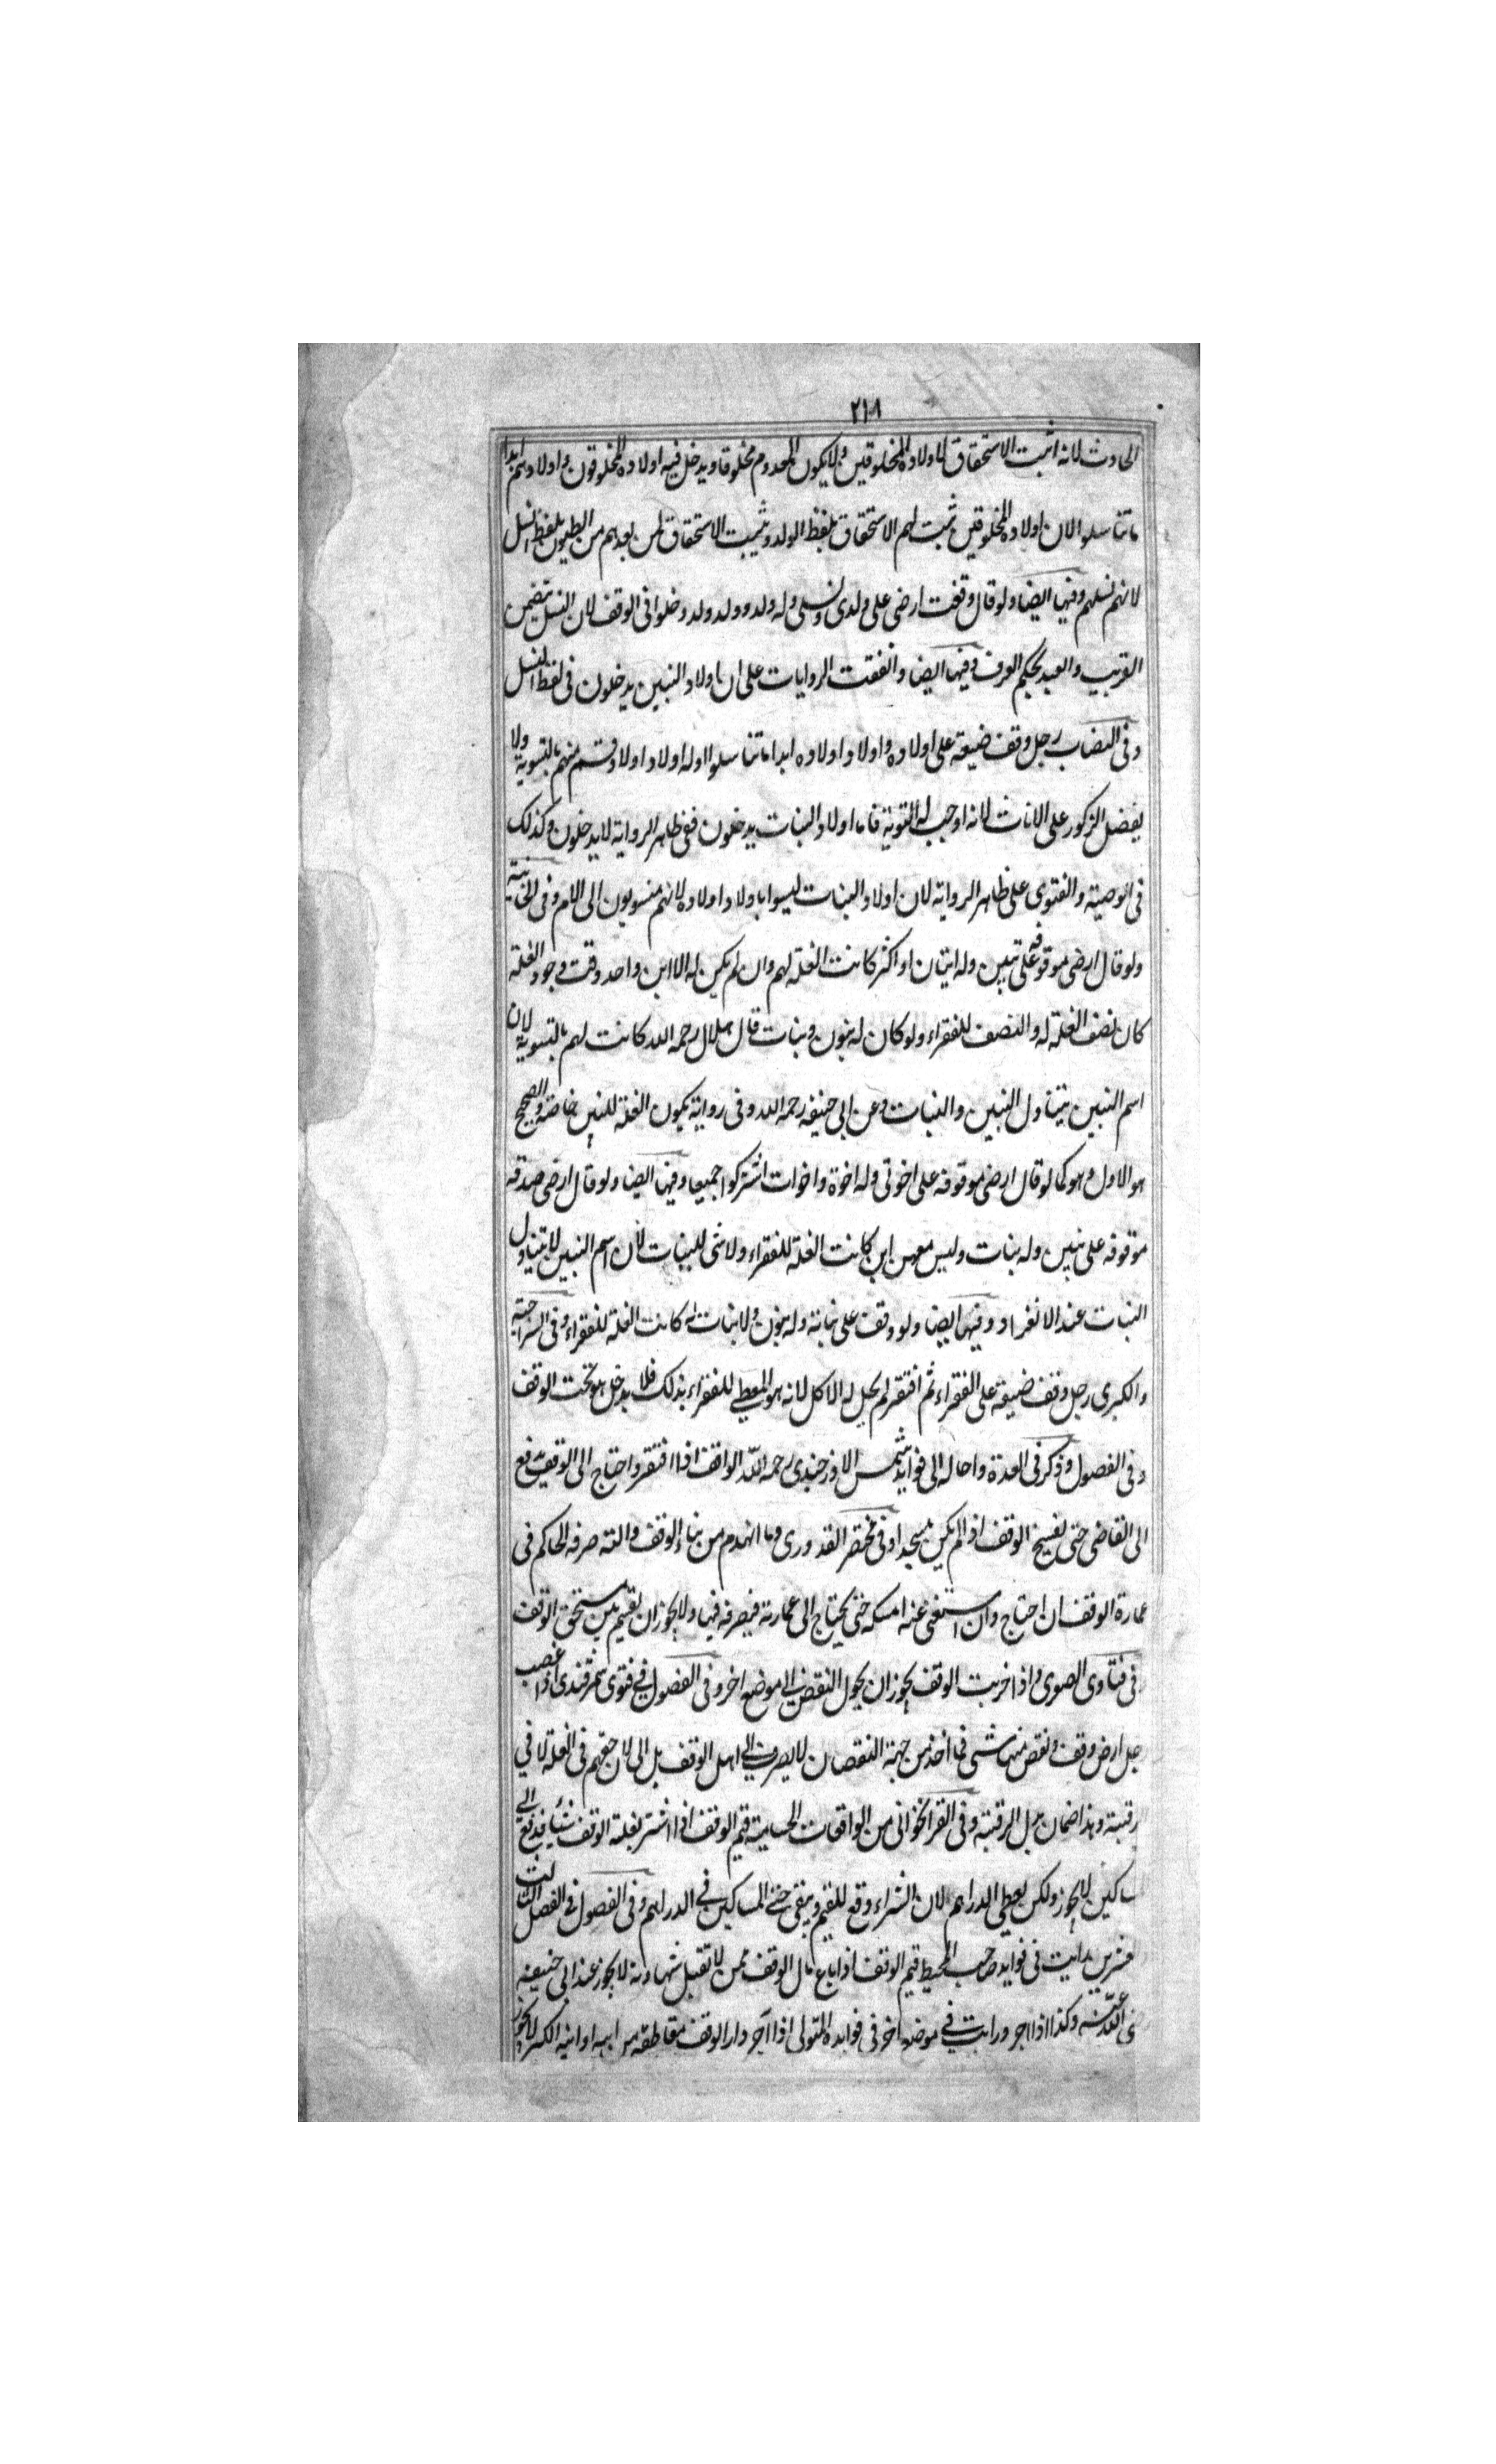 ٢١٨
الحادث لانه اثبت الاستحقاق لاولاده المخلوقين ولا يكون المعدوم مخلوقا ويدخل فيه اولاده المخلوقون واولادهم ابدا
ما تناسلوا لان اولاده المخلوقين ثبت لهم الاستحقاق بلفظ الولد ويثبت الاستحقاق لمن بعدهم من البطون بلفظ النسل
لانهم نسلهم وفيها ايضا ولو قال وقفت ارضى على ولدى ونسلى وله ولد وولد ولد دخلوا فى الوقف لان النسل يتضمن
القريب والبعيد بحكم العرف وفيها ايضا واتفقت الروايات على ان اولاد البنين يدخلون فى لفظ النسل
وفى النصاب رجل وقف ضيعته على اولاده واولاد اولاده ابدا ما تناسلوا وله اولاد اولاد قسم منهم بالتسوية ولا
يفضل الذكور على الاناث لانه اوجب له التسوية فاما اولاد البنات يدخلون ففى ظاهر الرواية لا يدخلون وكذلك
فى الوصية والفتوى على ظاهر الرواية لان اولاد البنات ليسوا باولاد اولاده لانهم منسوبون الى الام وفى الخانية
ولو قال ارضى موقوفه على بنين وله ابنان او اكثر كانت الغلة لهم وان لم يكن له الا ابن واحد وقت وجود الغلة
كان نصف الغلة له والنصف للفقراء ولو كان له بنون وبنات قال هلال رحمه الله كانت لهم بالتسوية لان
اسم البنين يتناول البنين والبنات وعن ابى حنيفه رحمه الله وفى رواية يكون الغلة للبنين خاصة والصحيح
هو الاول وهو كما لو قال ارضى موقوفه على اخوتى وله اخوة واخوات اشتركوا جميعا وفيها ايضا ولو قال ارضى صدقه
موقوفه على بنين وله بنات وليس معهن ابن كانت الغلة للفقراء ولا شى للبنات لان اسم البنين لا يتناول
البنات عند الانفراد وفيها ايضا ولو وقف على بناته وله بنون ولا بنات له كانت الغلة للفقراء وفى السراجية
والكبرى رجل وقف ضيعة على الفقراء ثم افتقر لم يحل له الاكل لانه هو المعطى للفقراء بذلك فلا يدخل هو تحت الوقف
وفى الفصول وذكر فى العدة واحاله الى فوايد شمس الاوزجندى رحمه الله الواقف اذا افتقر واحتاج الى الوقف يرفع
الى القاضى حتى يفسخ الوقف اذا لم يكن مسجدا وفى مختصر القدورى وما انهدم من بناء الوقف والته صرفه الحاكم فى
عمارة الوقف ان احتاج وان استغنى عنه امسكه حتى يحتاج الى عمارته فيصرفه فيها ولا يجوز ان يقسم بين مستحق الوقف
فى فتاوى الصوى واذا خربت الوقف يجوز ان يحول النقض الى موضع اخر وفى الفصول فى فتوى سمرقندى اذا غصب
رجل ارض وقف ونقص منها شى فما اخذ من جهة النقصان لا يصرف الى اهل الوقف بل الى لان حقهم فى الغلة لا فى
رقبته وهذا ضمان بدل الرقبة وفى القراخوانى من الواقعات الحسامية قيم الوقف اذا اشتر بغلة الوقف شيأ فدفع الى
ساكين لا يجوز ولكن يعطى الدراهم لان الشراء وقع للقيم ويبقى حق المساكين فى الدراهم وفى الفصول فى الفصل الثالث
عشرين رايت فى فوايد صاحب المحيط قيم الوقف اذا باع مال الوقف ممن لا تقبل شهادته لا يجوز عند ابى حنيفه
رضى الله عنه وكذا اذا اجر ورايت فى موضع اخر فى فوايده المتولى اذا آجر دار الوقف مقاطعة من ابيه او ابنه الكبير لا يجوز